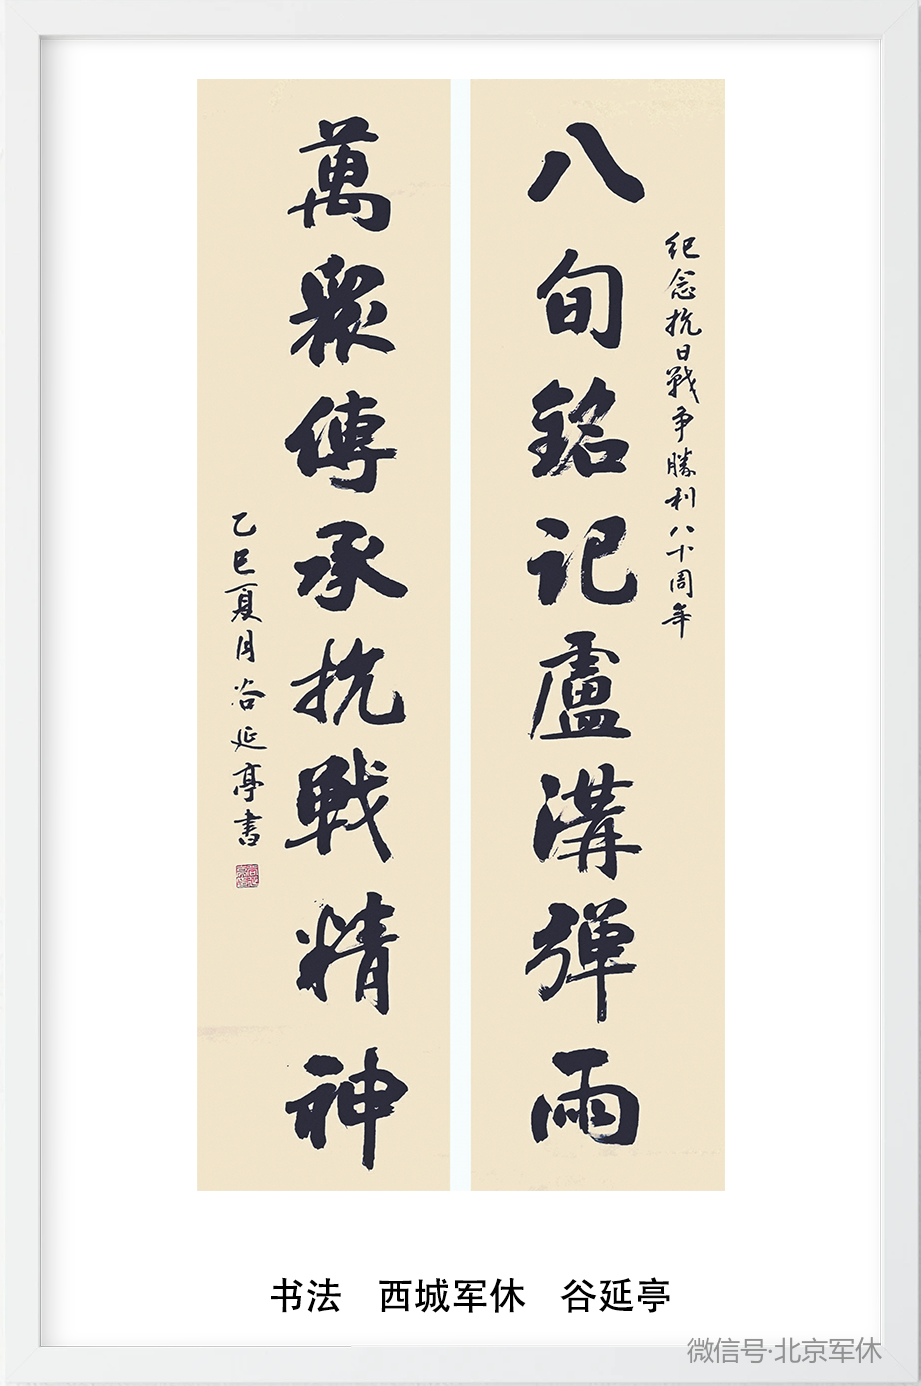 紀念抗日戰争勝利八十周年
八旬銘记盧溝彈雨
萬眾傳承抗戰精神
乙巳夏月谷延亭書
书法 西城军休 谷延亭
微信号·北京军休